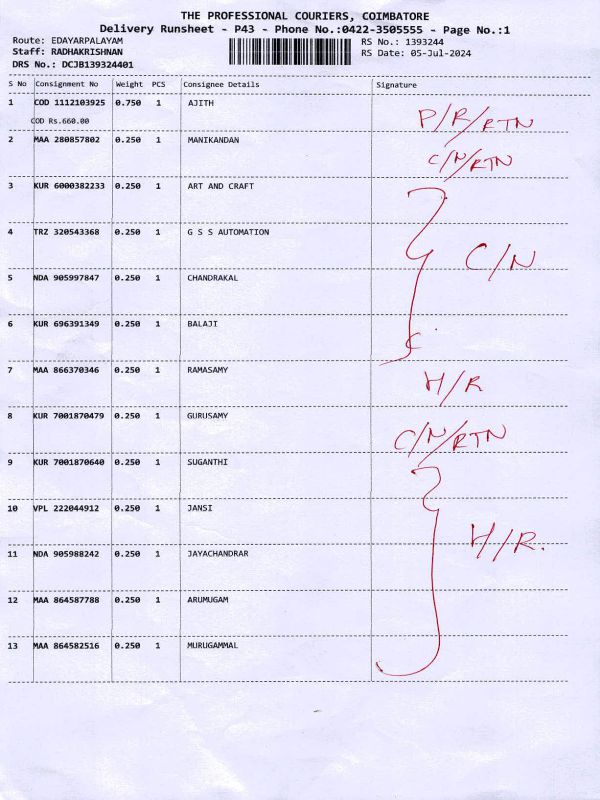 THE PROFESSIONAL COURIERS, COIMBATORE
Delivery Runsheet - P43 - Phone No.:0422-3505555 - Page No.:1
Route: EDAYARPALAYAM RS No.: 1393244
Staff: RADHAKRISHNAN RS Date: 05-Jul-2024
DRS No.: DCJB139324401
S No Consignment No Weight PCS Consignee Details Signature
1 COD 1112103925 0.750 1 AJITH
COD Rs.660.00 P/R/RTN
2 MAA 280857802 0.250 1 MANIKANDAN
C/N/RTN
3 KUR 6000382233 0.250 1 ART AND CRAFT
4 TRZ 320543368 0.250 1 G S S AUTOMATION
C/N
5 NDA 905997847 0.250 1 CHANDRAKAL
6 KUR 696391349 0.250 1 BALAJI
7 MAA 866370346 0.250 1 RAMASAMY
H/R
8 KUR 7001870479 0.250 1 GURUSAMY
C/N/RTN
9 KUR 7001870640 0.250 1 SUGANTHI
10 VPL 222044912 0.250 1 JANSI
H/R.
11 NDA 905988242 0.250 1 JAYACHANDRAR
12 MAA 864587788 0.250 1 ARUMUGAM
13 MAA 864582516 0.250 1 MURUGAMMAL